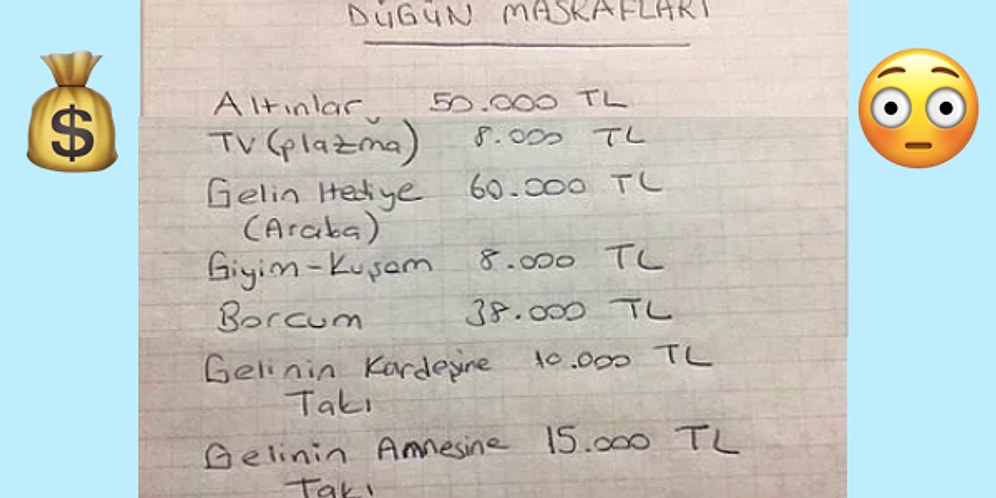 DÜGÜN MASRAFLARI
Altınlar 50.000 TL
TV (plazma) 8.000 TL
Gelin Hediye 60.000 TL
(Araba)
Giyim-Kuşam 8.000 TL
Borcum 38.000 TL
Gelinin Kardeşine 10.000 TL
Takı
Gelinin Annesine 15.000 TL
Takı